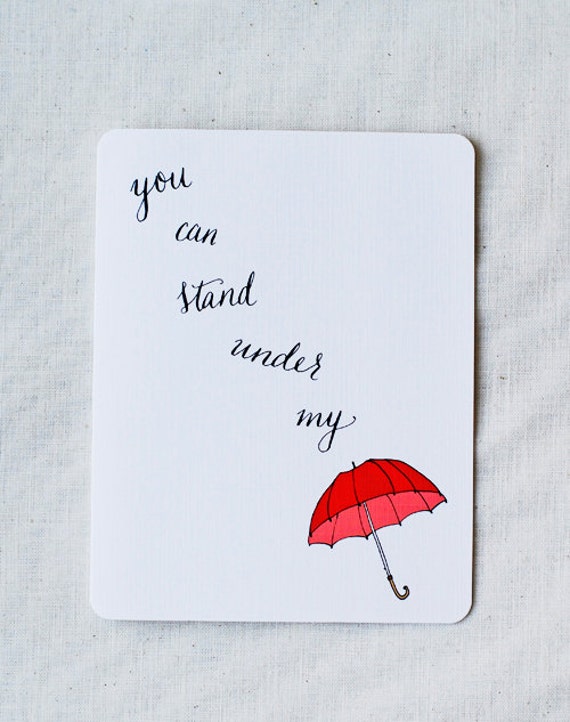 you
can
stand
under
my